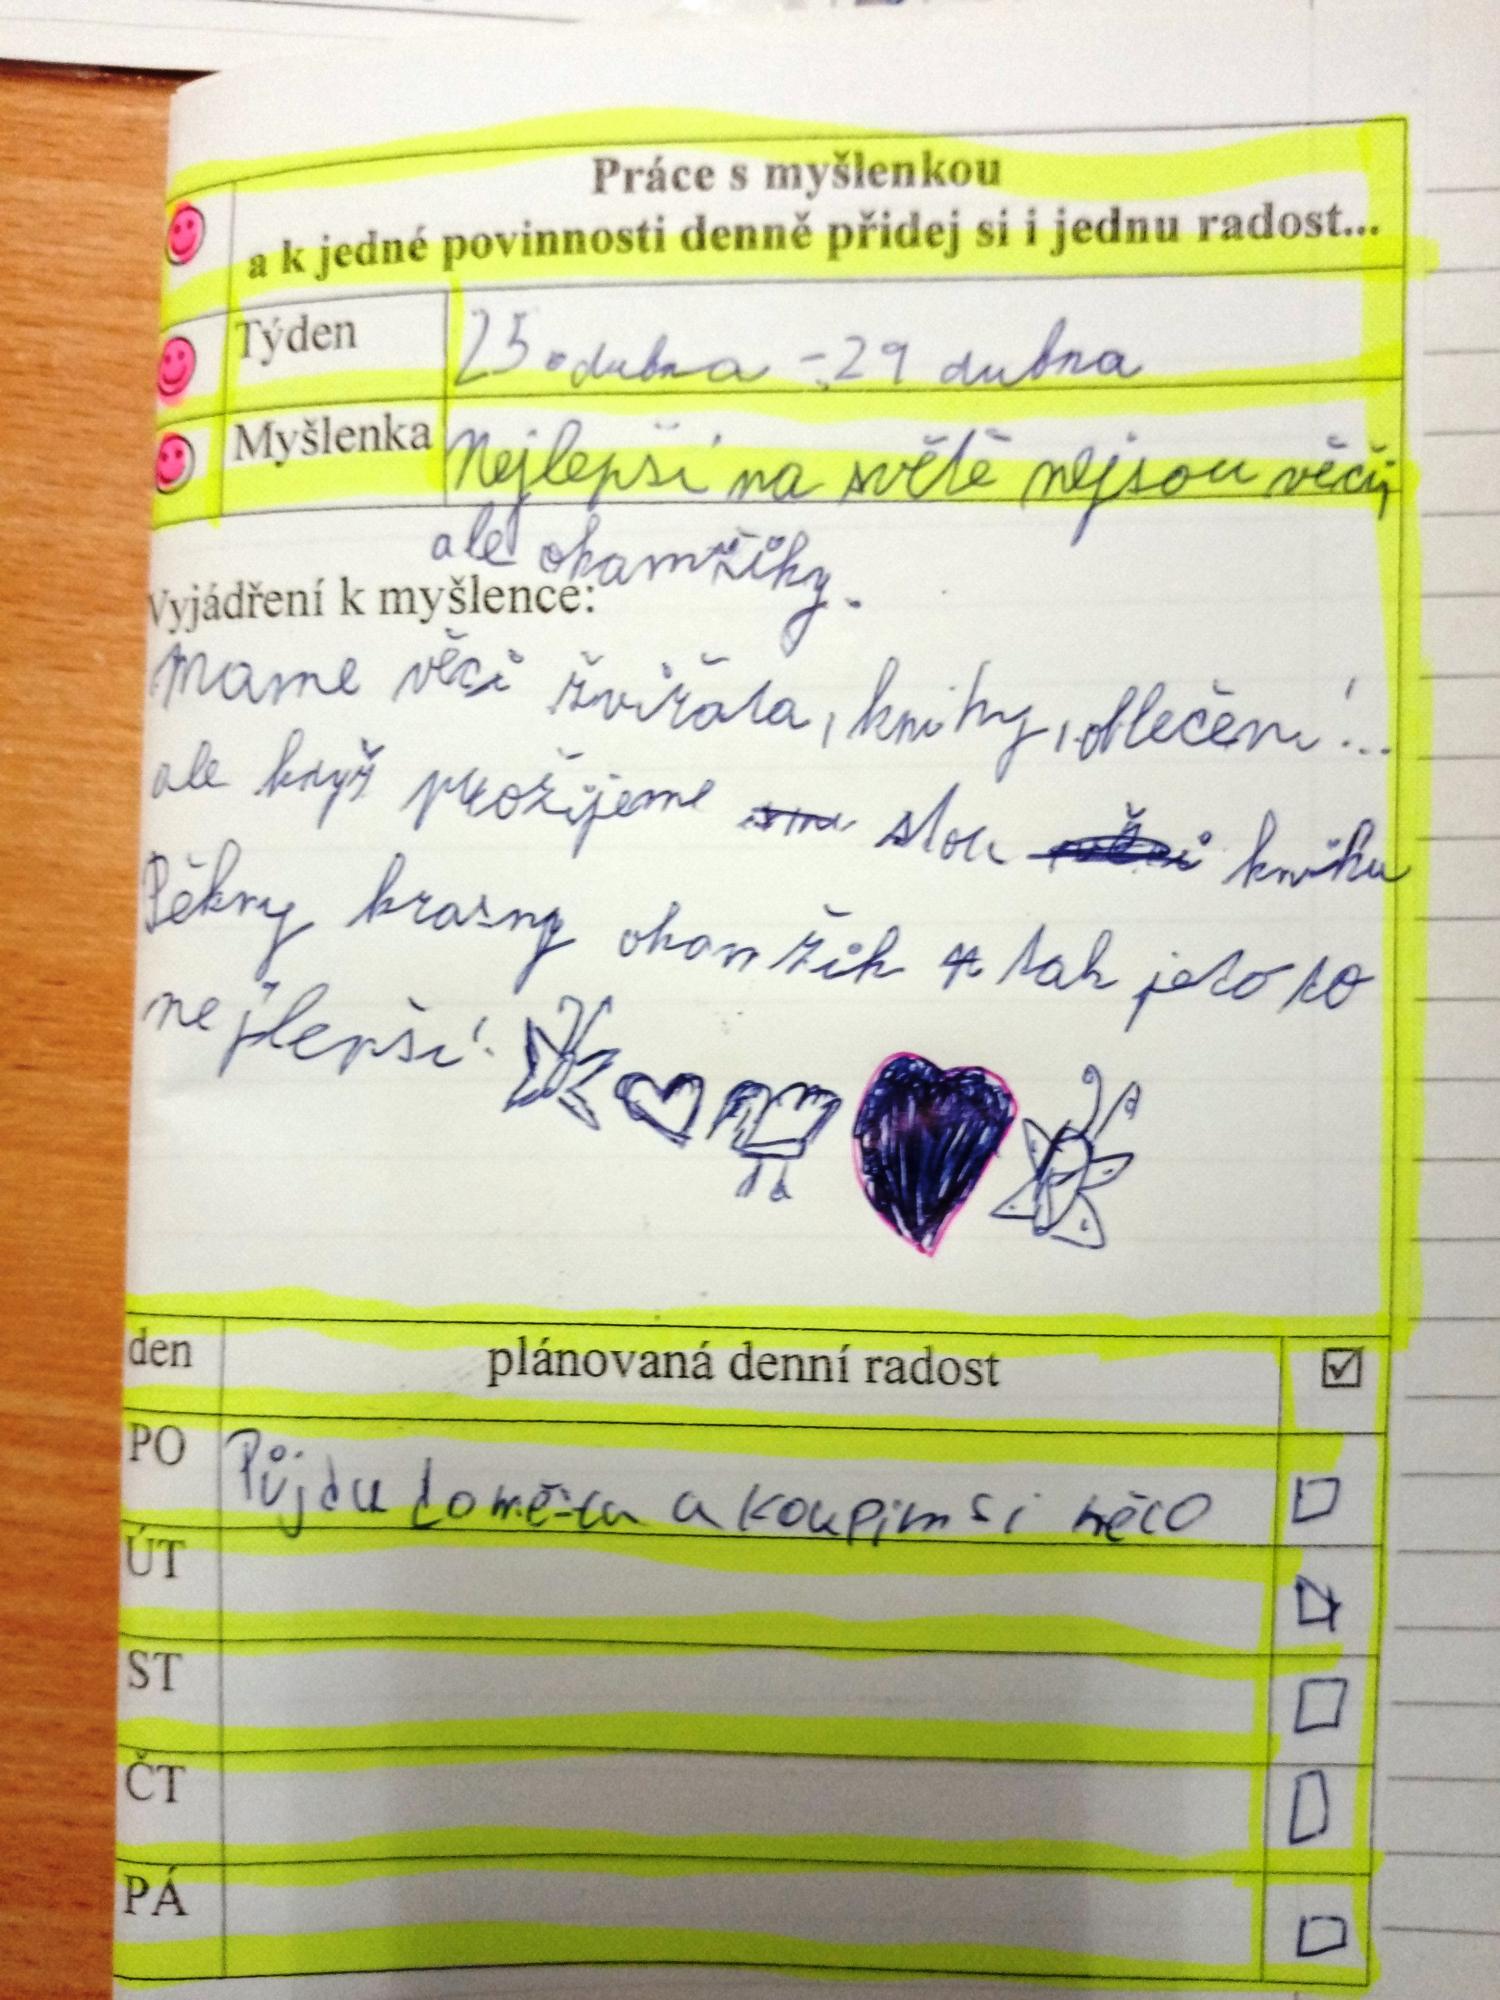 Práce s myšlenkou
a k jedné povinnosti denně přidej si i jednu radost...
Týden 25. dubna - 29 dubna
Myšlenka Nejlepší na světě nejsou věci,
ale okamžiky.
Vyjádření k myšlence:
Mame věci žvířata, knihy, oblečení...
ale když prožijeme stou knihu
Pěkny krasny okamžik tak jeto to
nejlepší.
den plánovaná denní radost ☑
PO Půjdu do města a koupim si něco
ÚT
ST
ČT
PÁ